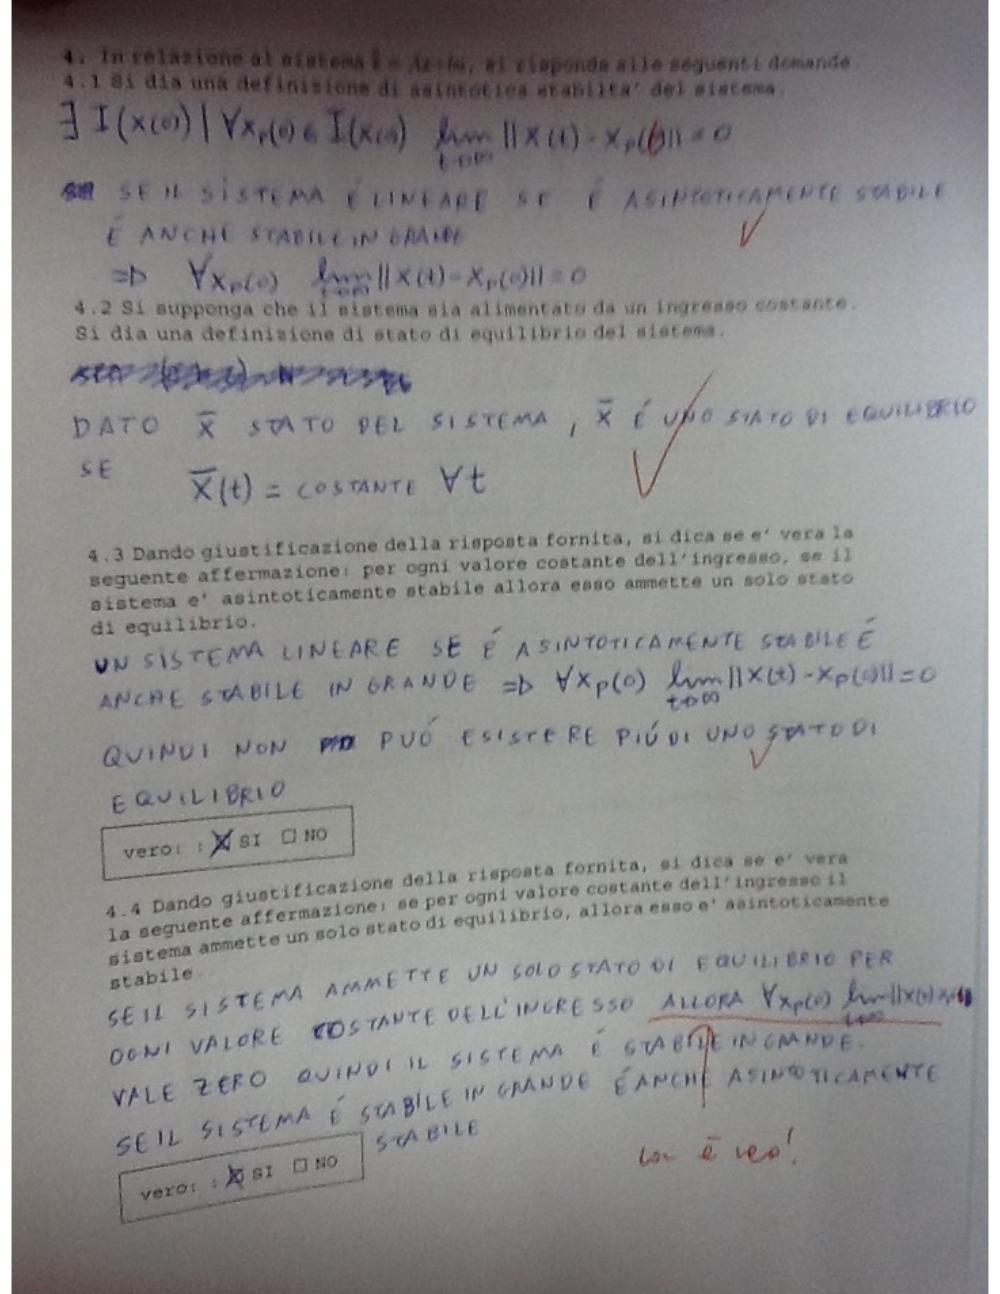 4. In relazione al sistema ẋ = Ax+bu, si risponda alle seguenti domande
4.1 Si dia una definizione di asintotica stabilta' del sistema.
∃ I(x(0)) | ∀xₚ(0) ∈ I(x(0)) lim t→∞ ||x(t) - xₚ(t)|| = 0
SE IL SISTEMA É LINEARE SE É ASINTOTICAMENTE STABILE
É ANCHE STABILE IN GRANDE
=> ∀xₚ(0) lim t→∞ ||x(t) - xₚ(0)|| = 0
4.2 Si supponga che il sistema sia alimentato da un ingresso costante.
Si dia una definizione di stato di equilibrio del sistema.
DATO x̄ STATO DEL SISTEMA, x̄ É UNO STATO DI EQUILIBRIO
SE x̄(t) = COSTANTE ∀t
4.3 Dando giustificazione della risposta fornita, si dica se e' vera la
seguente affermazione: per ogni valore costante dell'ingresso, se il
sistema e' asintoticamente stabile allora esso ammette un solo stato
di equilibrio.
UN SISTEMA LINEARE SE É ASINTOTICAMENTE STABILE É
ANCHE STABILE IN GRANDE => ∀xₚ(0) lim t→∞ ||x(t) - xₚ(0)|| = 0
QUINDI NON PUÓ ESISTERE PIÚ DI UNO STATO DI
EQUILIBRIO
vero: : ☒ SI ☐ NO
4.4 Dando giustificazione della risposta fornita, si dica se e' vera
la seguente affermazione: se per ogni valore costante dell'ingresso il
sistema ammette un solo stato di equilibrio, allora esso e' asintoticamente
stabile.
SE IL SISTEMA AMMETTE UN SOLO STATO DI EQUILIBRIO PER
OGNI VALORE COSTANTE DELL'INGRESSO ALLORA ∀xₚ(0) lim t→∞ ||x(t)
VALE ZERO QUINDI IL SISTEMA É STABILE IN GRANDE.
SE IL SISTEMA É STABILE IN GRANDE É ANCHE ASINTOTICAMENTE
STABILE
vero: : ☒ SI ☐ NO
non è vero!